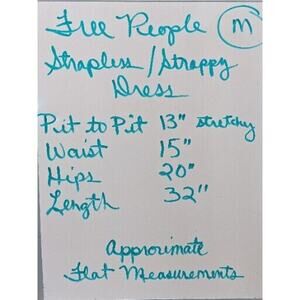 Free People M
Strapless/Strappy
Dress
Pit to Pit 13" stretchy
Waist 15"
Hips 20"
Length 32"
Approximate
Flat Measurements